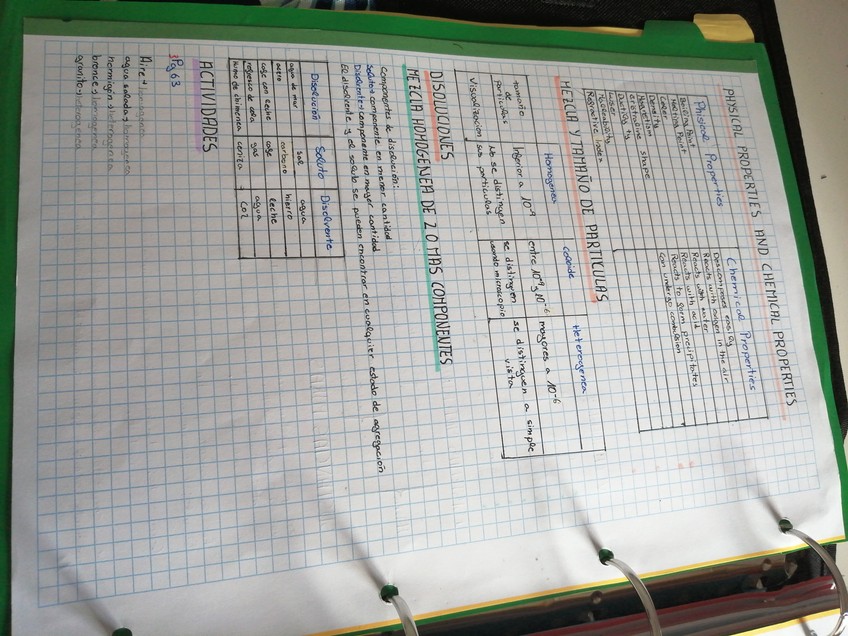 PHYSICAL PROPERTIES AND CHEMICAL PROPERTIES
Phisical Properties
Boiling Point
Melting Point
Color
Density
crystalline shape
Ductility
Refractive Index
Chemical Properties
Descomposes easaly
Reacts with oxigen in the air
Reacts with water
Reacts with acid
Reacts to form precipitates
Can undergo combustion
MEZCLA Y TAMAÑO DE PARTICULAS
Homogenea coloide Heterogenea
tamaño de particulas Inferior a 10⁻⁹ entre 10⁻⁹ y 10⁻⁶ mayores a 10⁻⁶
visualizacion No se distingen sus particulas se distingen usando microscopio se distinguen a simple vista
DISOLUCIONES
MEZCLA HOMOGENEA DE 2 O MAS COMPONENTES
Componentes de disolución:
Soluto: componente en menor cantidad
Disolvente: componente en mayor cantidad
El disolvente y el soluto se pueden encontrar en cualquier estado de agregación
Disolución Soluto Disolvente
agua de mar sal agua
acero carbono hierro
cafe con leche cafe leche
refresco de cola gas agua
humo de chimenea ceniza CO2
ACTIVIDADES
3Pg 63
Aire → homogenea
agua salada → homogenea
hormigón → heterogenea
bronce → homogenea
granito → heterogenea